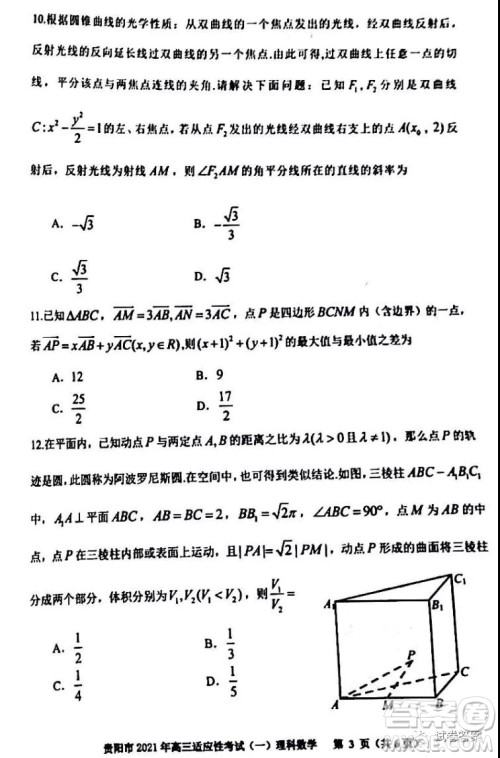 10.根据圆锥曲线的光学性质：从双曲线的一个焦点发出的光线，经双曲线反射后，
反射光线的反向延长线过双曲线的另一个焦点.由此可得,过双曲线上任意一点的切
线，平分该点与两焦点连线的夹角.请解决下面问题：已知 F₁, F₂ 分别是双曲线
C: x² - y²/2 = 1 的左、右焦点，若从点 F₂ 发出的光线经双曲线右支上的点 A(x₀, 2) 反
射后，反射光线为射线 AM，则 ∠F₂AM 的角平分线所在的直线的斜率为
A. -√3 B. -√3/3
C. √3/3 D. √3
11.已知 ΔABC，AM = 3AB, AN = 3AC，点 P 是四边形 BCNM 内（含边界）的一点，
若 AP = xAB + yAC(x, y∈R), 则 (x+1)² + (y+1)² 的最大值与最小值之差为
A. 12 B. 9
C. 25/2 D. 17/2
12.在平面内，已知动点 P 与两定点 A, B 的距离之比为 λ(λ>0且λ≠1)，那么点 P 的轨
迹是圆，此圆称为阿波罗尼斯圆.在空间中，也可得到类似结论.如图，三棱柱 ABC-A₁B₁C₁
中，A₁A⊥平面 ABC，AB=BC=2，BB₁=√2π，∠ABC=90°，点 M 为 AB 的中
点，点 P 在三棱柱内部或表面上运动，且|PA|=√2|PM|，动点 P 形成的曲面将三棱柱
分成两个部分，体积分别为 V₁, V₂(V₁<V₂)，则 V₁/V₂ =
A. 1/2 B. 1/3
C. 1/4 D. 1/5
C₁
A₁ B₁
P
C
A M B
贵阳市 2021 年高三适应性考试（一）理科数学 第 3 页（共6页）